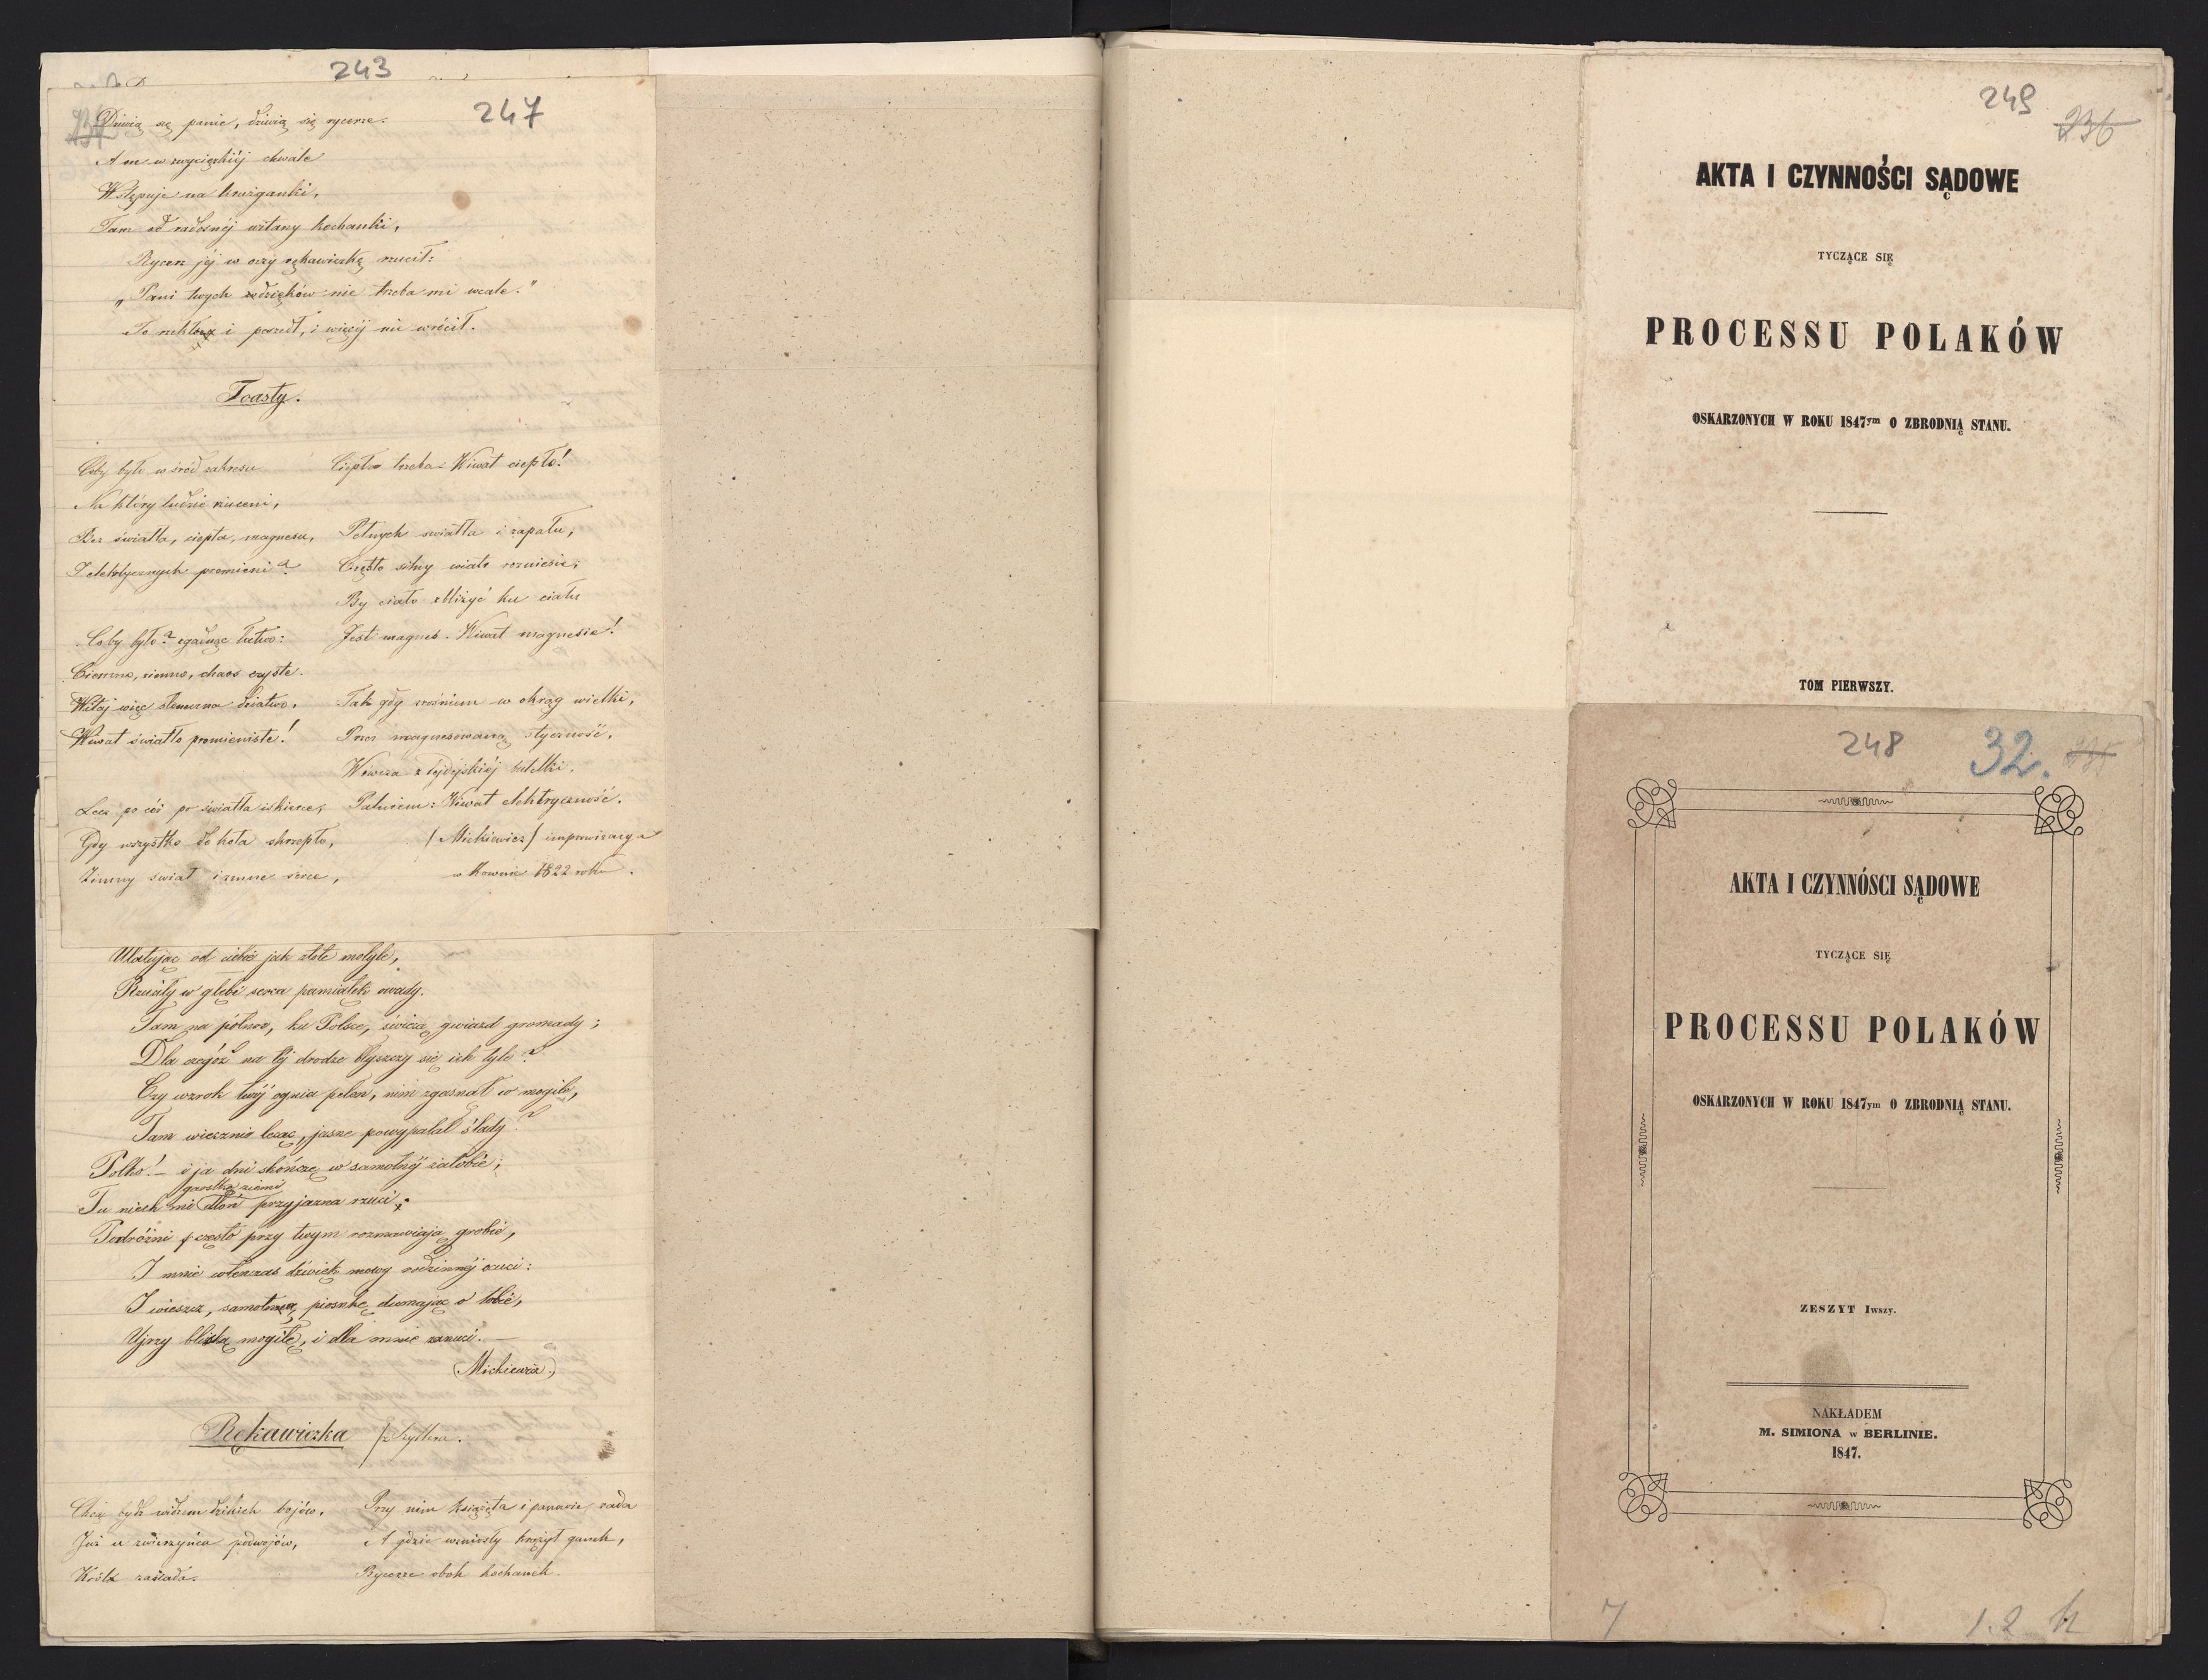 243
247
Dziwią się panie, dziwią się rycerze.
A on w zwycięzkiéj chwale
Wstępuje na krużganki,
Tam od radosnéj witany kochanki,
Rycerz jéj w oczy rękawiczkę rzucił:
„Pani twych wdzięków nie trzeba mi wcale."
To rzekł i poszedł, i więcéj nie wrócił.
Toasty.
Coby było wśród zakresu
Na który ludzie rzuceni,
Bez światła, ciepła, magnesu,
I elektrycznych promieni?
Coby było? zgaduję łatwo:
Ciemno, zimno, chaos czyste.
Witaj więc słoneczna dziatwo,
Wiwat światło promieniste!
Lecz po cóż po światła iskierce,
Gdy wszystko do koła skrzepło,
Zimny świat i zimne serce,
Ciepła trzeba: Wiwat ciepło!
Pełnych swiatła i zapału,
Często silny wiatr rozniesie;
By ciało zbliżyć ku ciału
Jest magnes. Wiwat magnesie!
Tak gdy zrośniem w okrąg wielki,
Przez magnesowaną styczność,
Wówcza z lejdejskiéj butelki,
Palniem: Wiwat elektryczność.
(Mickiewicz) improwizacya
w Kownie 1822 roku.
Ulatując od ciebie jak złote motyle,
Rzuciły w głębi serca pamiatek owady.
Tam na północ, ku Polsce, świecą gwiazd gromady;
Dla czegóż na téj drodze błyszczy się ich tyle?
Czy wzrok twój ognia pełen, nim zgasnął w mogile,
Tam wiecznie lecąc, jasne powypalał ślady?
Polko! – i ja dni skończę w samotnéj żałobie;
garstkę ziemi
Tu niech mi dłoń przyjazna rzuci;
Podróżni często przy twym rozmawiają grobie,
I mnie wtenczas dźwięk mowy rodzinnéj ocuci:
I wieszcz, samotną piosnkę dumając o tobie,
Ujrzy bliską mogiłę, i dla mnie zanuci. —
(Mickiewicz.)
Rękawiczka /z Szyllera.
Chcąc być widzem dzikich bojów,
Już u zwierzyńca podwojów,
Król zasiada.
Przy nim książęta i panowie rada
A gdzie wzniosły krążył ganek,
Rycerze obok kochanek.
249
236
AKTA I CZYNNOŚCI SĄDOWE
TYCZĄCE SIĘ
PROCESSU POLAKÓW
OSKARZONYCH W ROKU 1847ym O ZBRODNIĄ STANU.
TOM PIERWSZY.
248
32.
AKTA I CZYNNÓSCI SĄDOWE
TYCZĄCE SIĘ
PROCESSU POLAKÓW
OSKARZONYCH W ROKU 1847ym O ZBRODNIĄ STANU.
ZESZYT Iwszy.
NAKŁADEM
M. SIMIONA w BERLINIE.
1847.
7
1.2